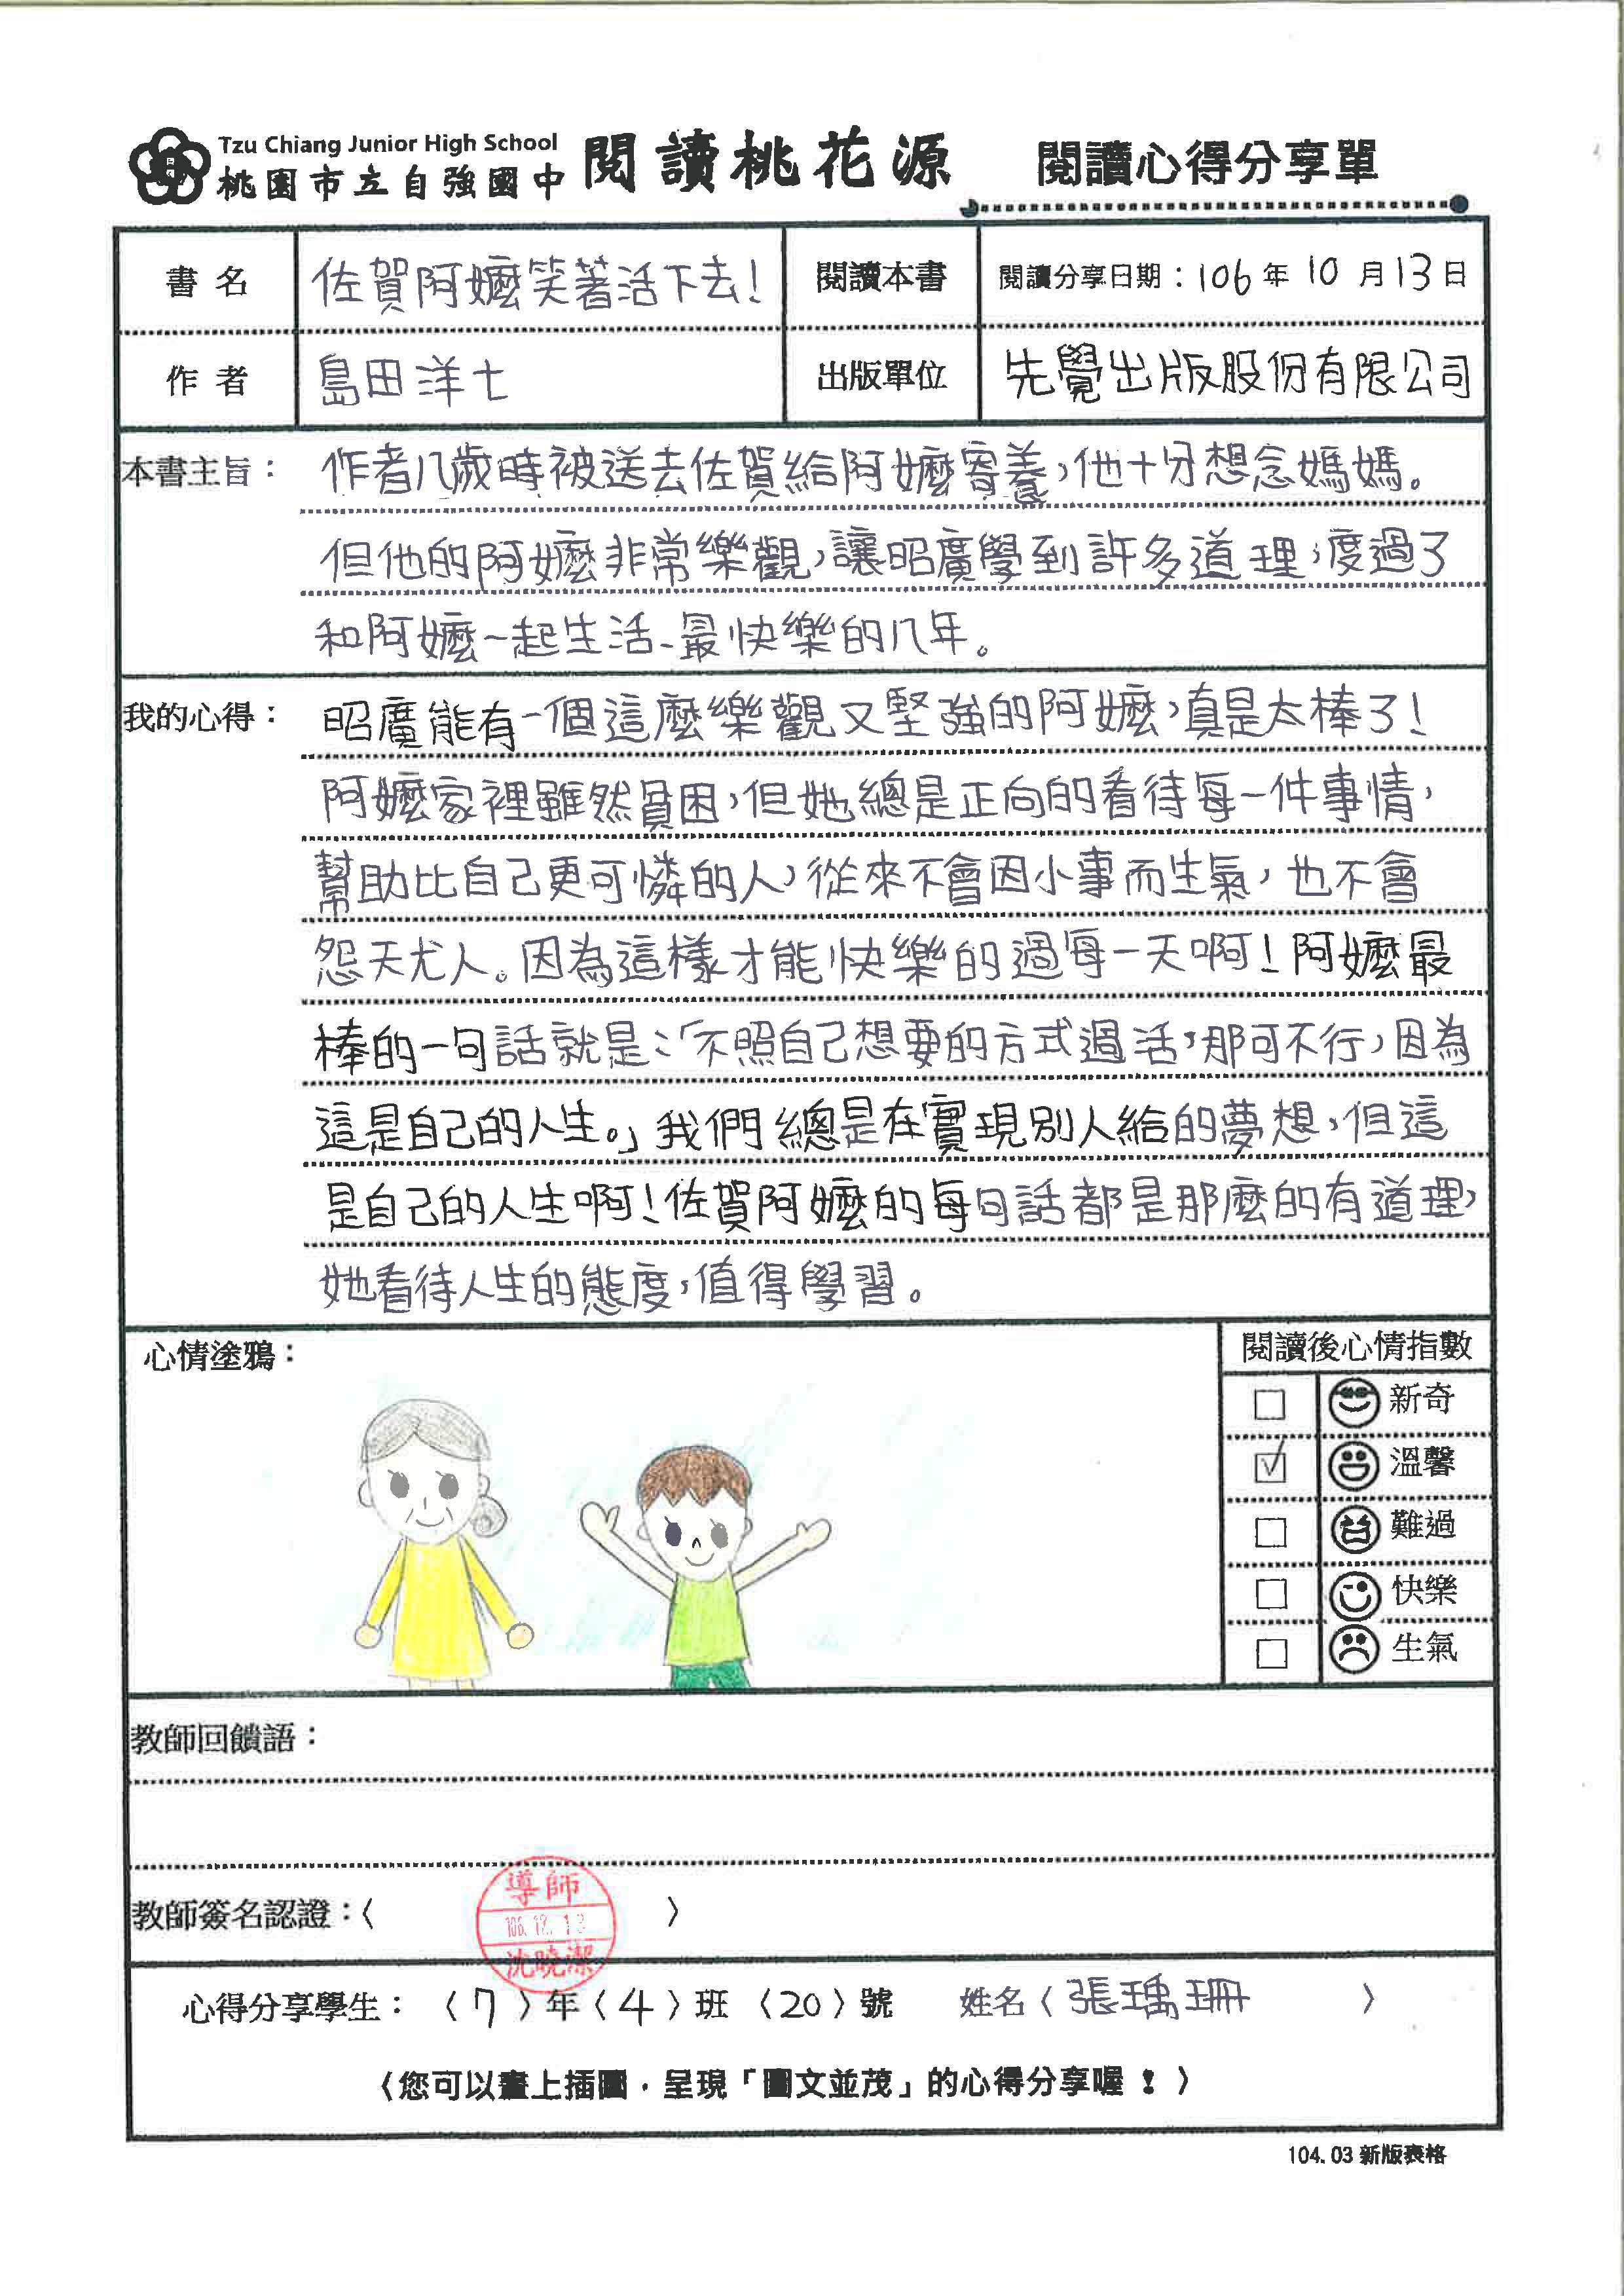 Tzu Chiang Junior High School
桃園市立自強國中 閱讀桃花源 閱讀心得分享單
書名 佐賀阿嬤笑著活下去! 閱讀本書 閱讀分享日期:106年10月13日
作者 島田洋七 出版單位 先覺出版股份有限公司
本書主旨: 作者八歲時被送去佐賀給阿嬤寄養,他十分想念媽媽。
但他的阿嬤非常樂觀,讓昭廣學到許多道理,度過了
和阿嬤一起生活、最快樂的八年。
我的心得: 昭廣能有一個這麼樂觀又堅強的阿嬤,真是太棒了!
阿嬤家裡雖然貧困,但她總是正向的看待每一件事情,
幫助比自己更可憐的人,從來不會因小事而生氣,也不會
怨天尤人。因為這樣才能快樂的過每一天啊!阿嬤最
棒的一句話就是:「不照自己想要的方式過活,那可不行,因為
這是自己的人生。」我們總是在實現別人給的夢想,但這
是自己的人生啊!佐賀阿嬤的每句話都是那麼的有道理,
她看待人生的態度,值得學習。
心情塗鴉: 閱讀後心情指數
新奇
溫馨
難過
快樂
生氣
教師回饋語:
教師簽名認證:〈 〉
導師
106.12.13
沈曉潔
心得分享學生: 〈7〉年〈4〉班〈20〉號 姓名〈張瑀珊 〉
〈您可以畫上插圖,呈現「圖文並茂」的心得分享喔!〉
104.03新版表格